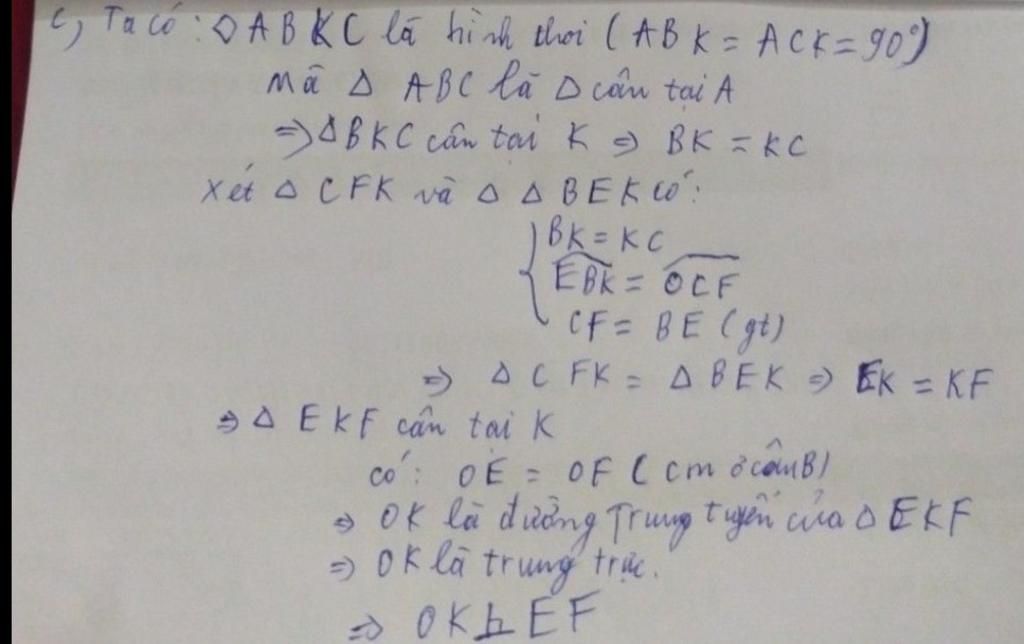 c, Ta có: ◇ABKC là hình thoi (ABK = ACK = 90°)
Mã △ ABC là △ cân tại A
=> △BKC cân tại K => BK = KC
Xét △ CFK và △ △ BEK có:
BK = KC
EBK = OCF
CF = BE (gt)
=> △ CFK = △ BEK => EK = KF
=> △ EKF cân tại K
có: OE = OF ( cm ở câu B)
=> OK là đường Trung tuyến của △ EKF
=> OK là trung trực.
=> OK ⊥ EF